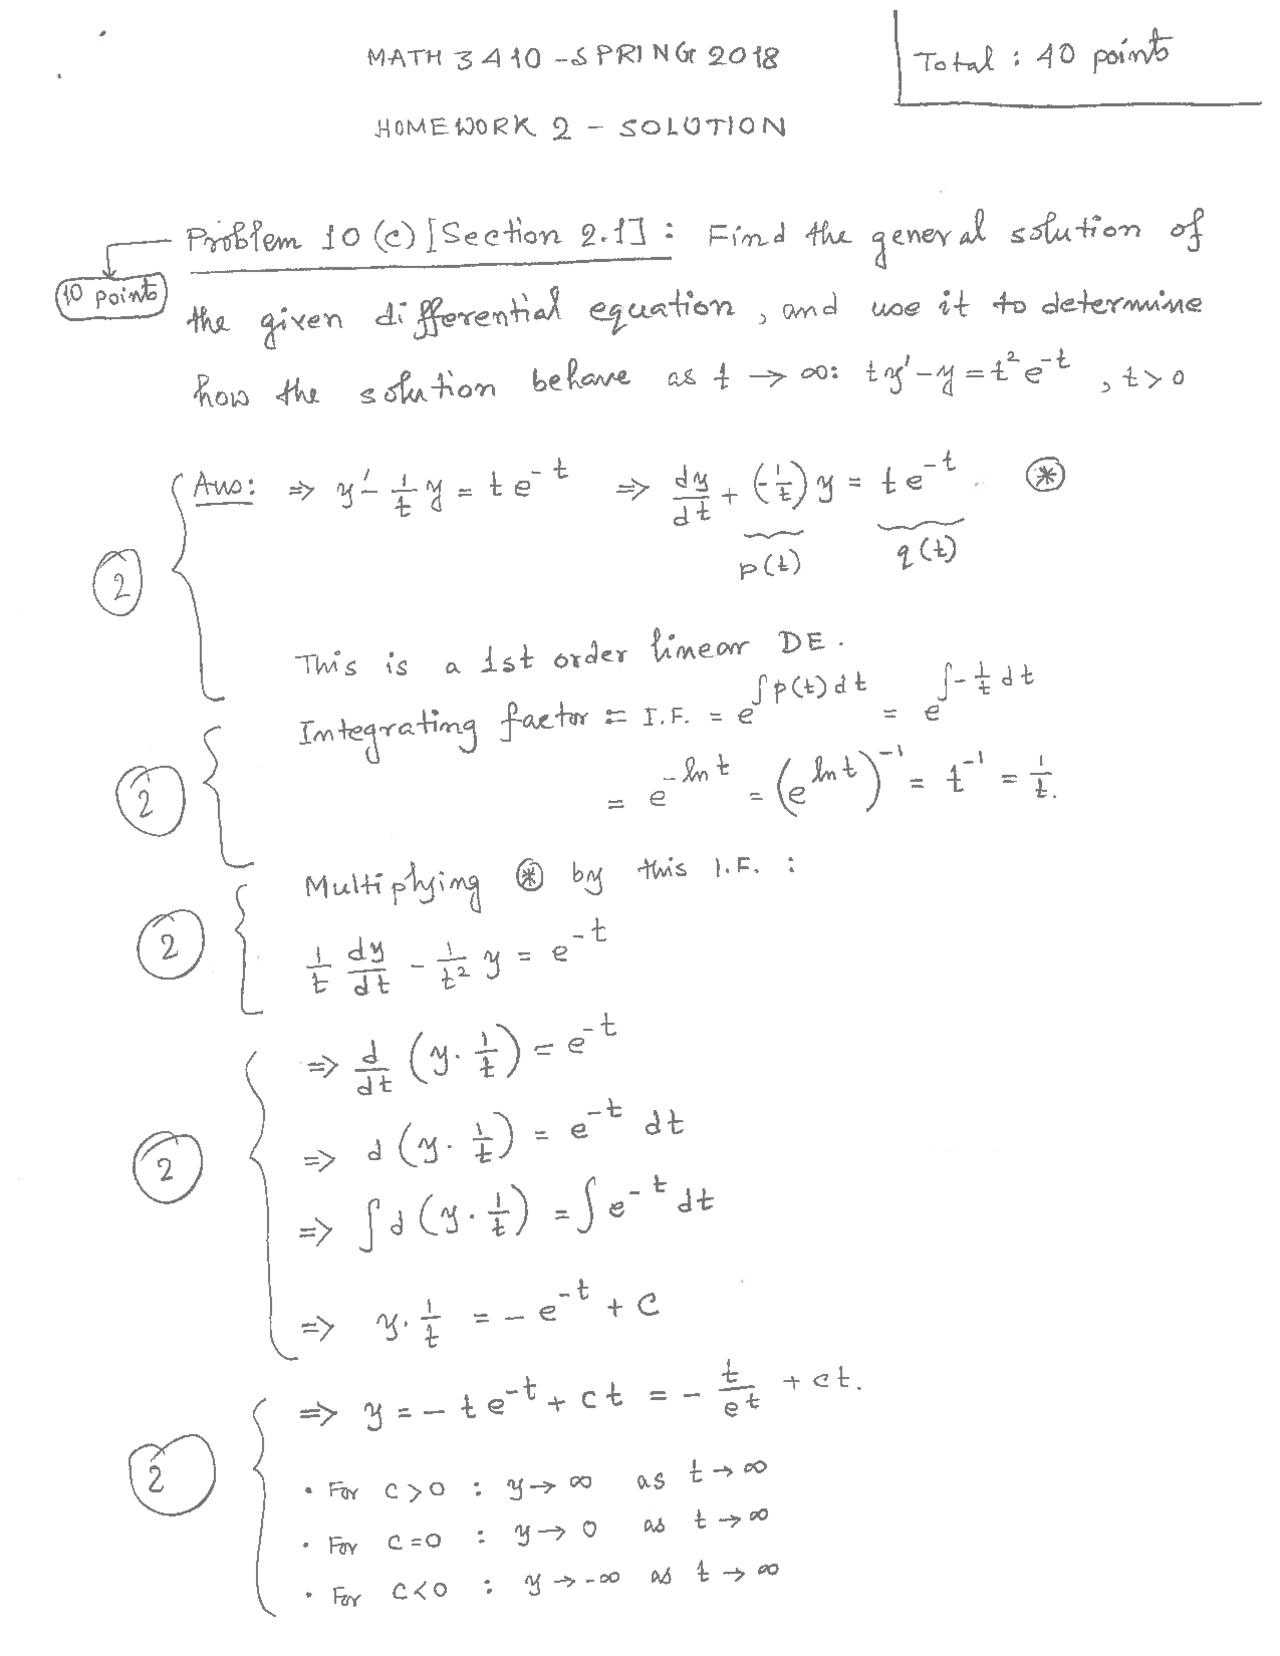 MATH 3410 - SPRING 2018
Total : 40 points
HOMEWORK 2 - SOLUTION
Problem 10 (c) [Section 2.1] : Find the general solution of
10 points
the given differential equation, and use it to determine
how the solution behave as t → ∞: ty' - y = t² e^-t , t > 0
Ans: ⇒ y' - 1/t y = t e^-t ⇒ dy/dt + (-1/t) y = t e^-t . ⊛
p(t) q(t)
2
This is a 1st order linear DE.
Integrating factor = I.F. = e^∫p(t)dt = e^∫-1/t dt
2
= e^-ln t = (e^ln t)^-1 = t^-1 = 1/t.
Multiplying ⊛ by this I.F. :
2
1/t dy/dt - 1/t² y = e^-t
⇒ d/dt (y · 1/t) = e^-t
⇒ d (y · 1/t) = e^-t dt
2
⇒ ∫ d (y · 1/t) = ∫ e^-t dt
⇒ y · 1/t = - e^-t + C
⇒ y = - t e^-t + ct = - t/e^t + ct.
2
• For C > 0 : y → ∞ as t → ∞
• For C = 0 : y → 0 as t → ∞
• For C < 0 : y → -∞ as t → ∞